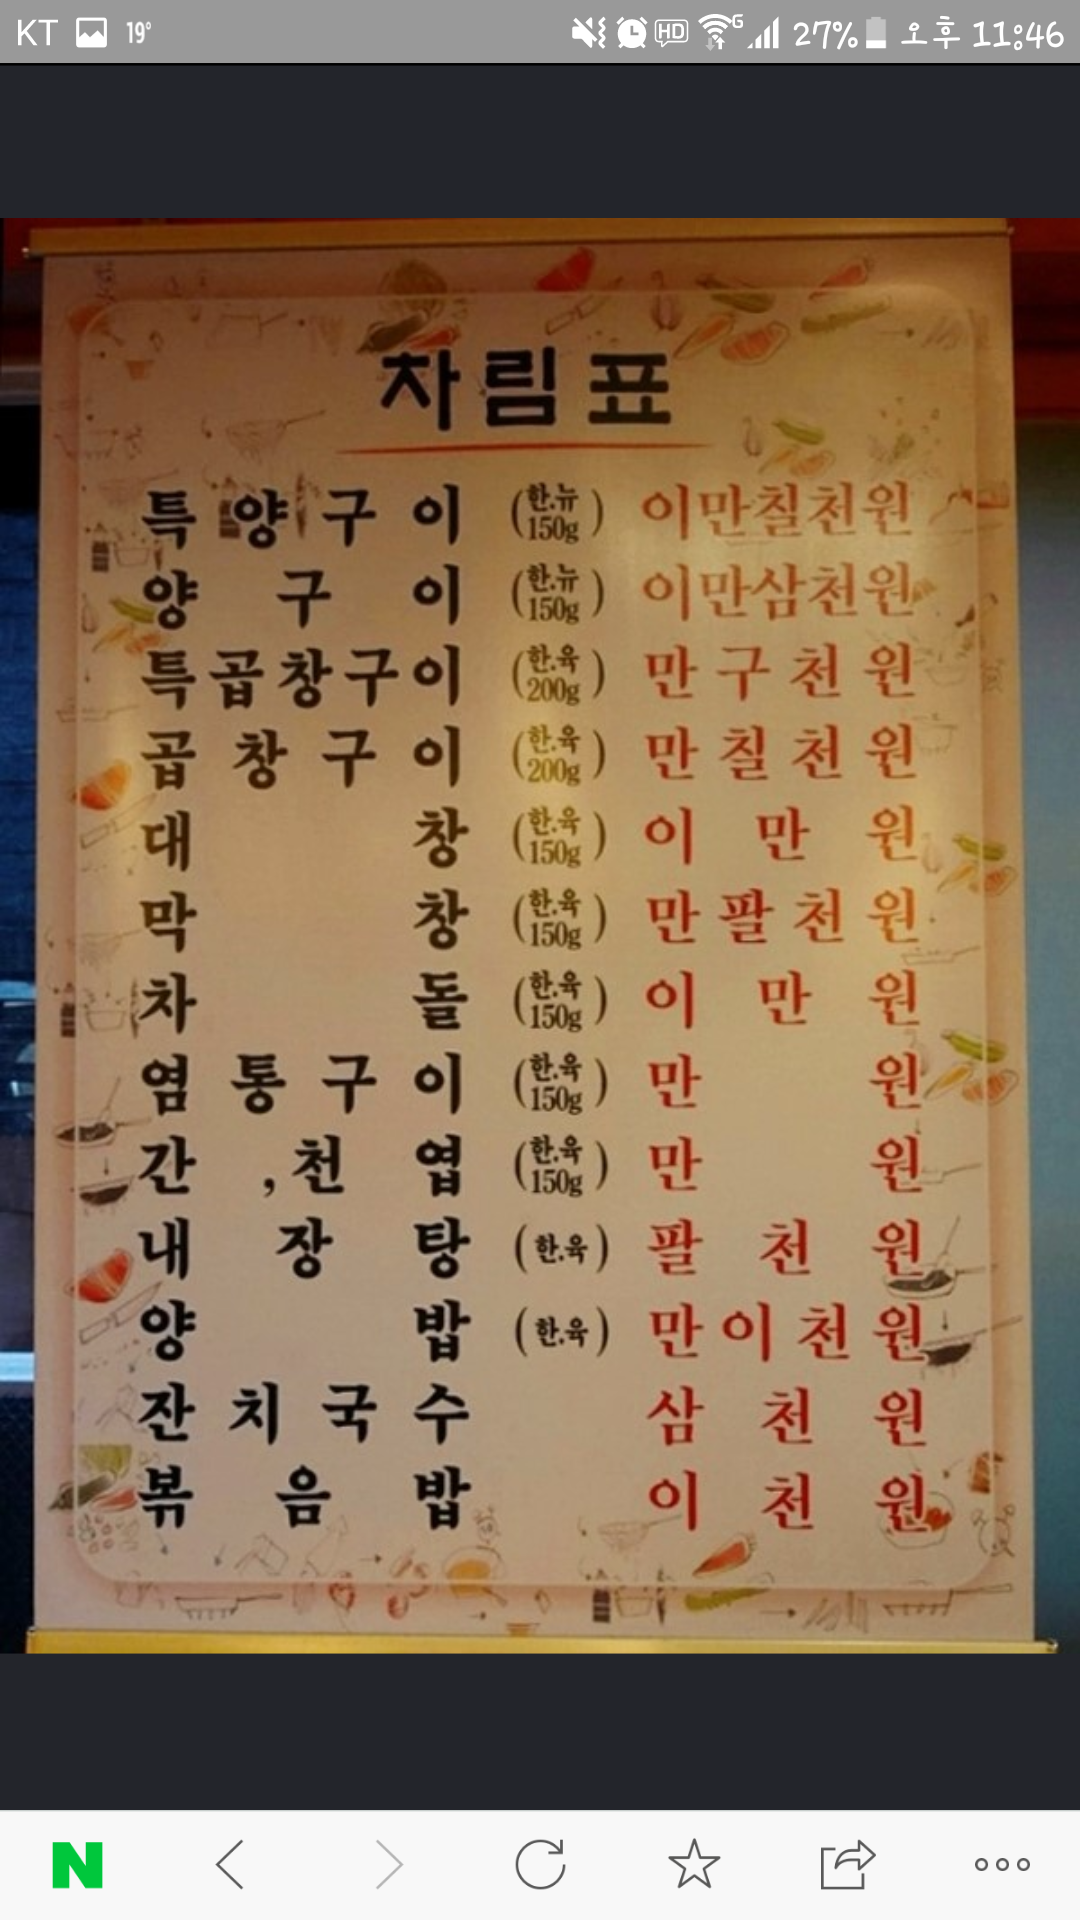 KT 19° HD G 27% 오후 11:46
차림표
특양구이 (한.뉴 150g) 이만칠천원
양구이 (한.뉴 150g) 이만삼천원
특곱창구이 (한.육 200g) 만구천원
곱창구이 (한.육 200g) 만칠천원
대창 (한.육 150g) 이만원
막창 (한.육 150g) 만팔천원
차돌 (한.육 150g) 이만원
염통구이 (한.육 150g) 만원
간,천엽 (한.육 150g) 만원
내장탕 (한.육) 팔천원
양밥 (한.육) 만이천원
잔치국수 삼천원
볶음밥 이천원
N